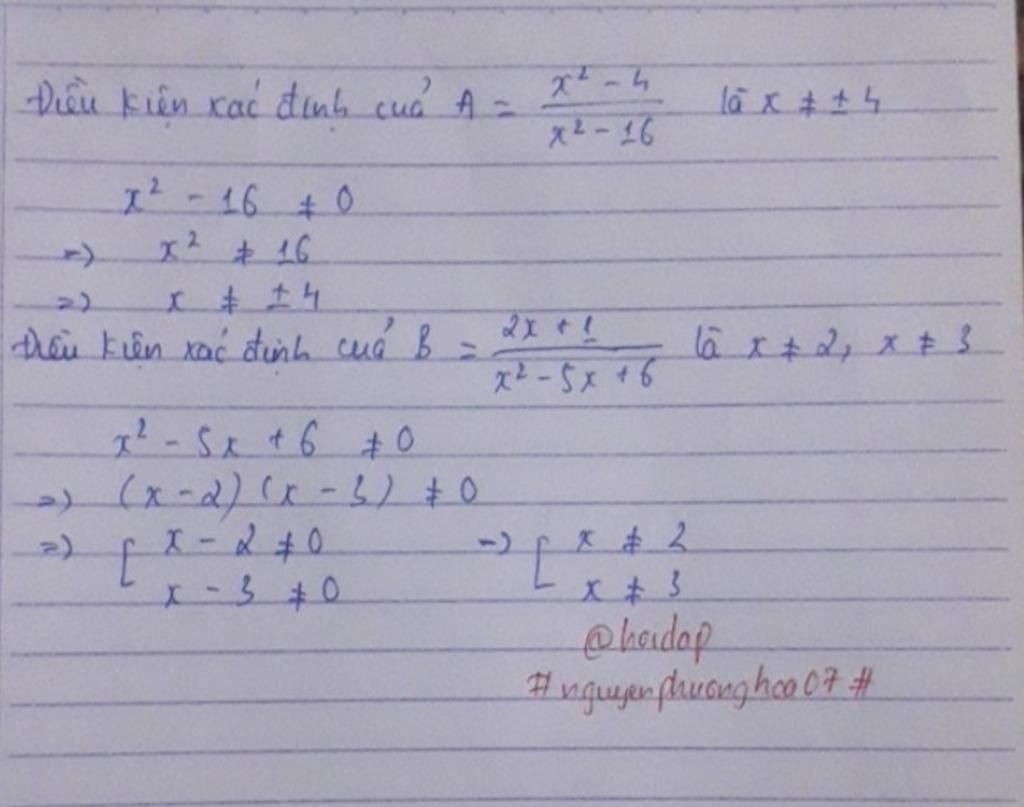 Điều kiện xác định của A = \frac{x² - 4}{x² - 16} là x ≠ ± 4
x² - 16 ≠ 0
=> x² ≠ 16
=> x ≠ ± 4
Điều kiện xác định của B = \frac{2x + 1}{x² - 5x + 6} là x ≠ 2, x ≠ 3
x² - 5x + 6 ≠ 0
=> (x - 2) (x - 3) ≠ 0
=> [ x - 2 ≠ 0 => [ x ≠ 2
x - 3 ≠ 0 x ≠ 3
@hoidap
#nguyenphuonghoa07#